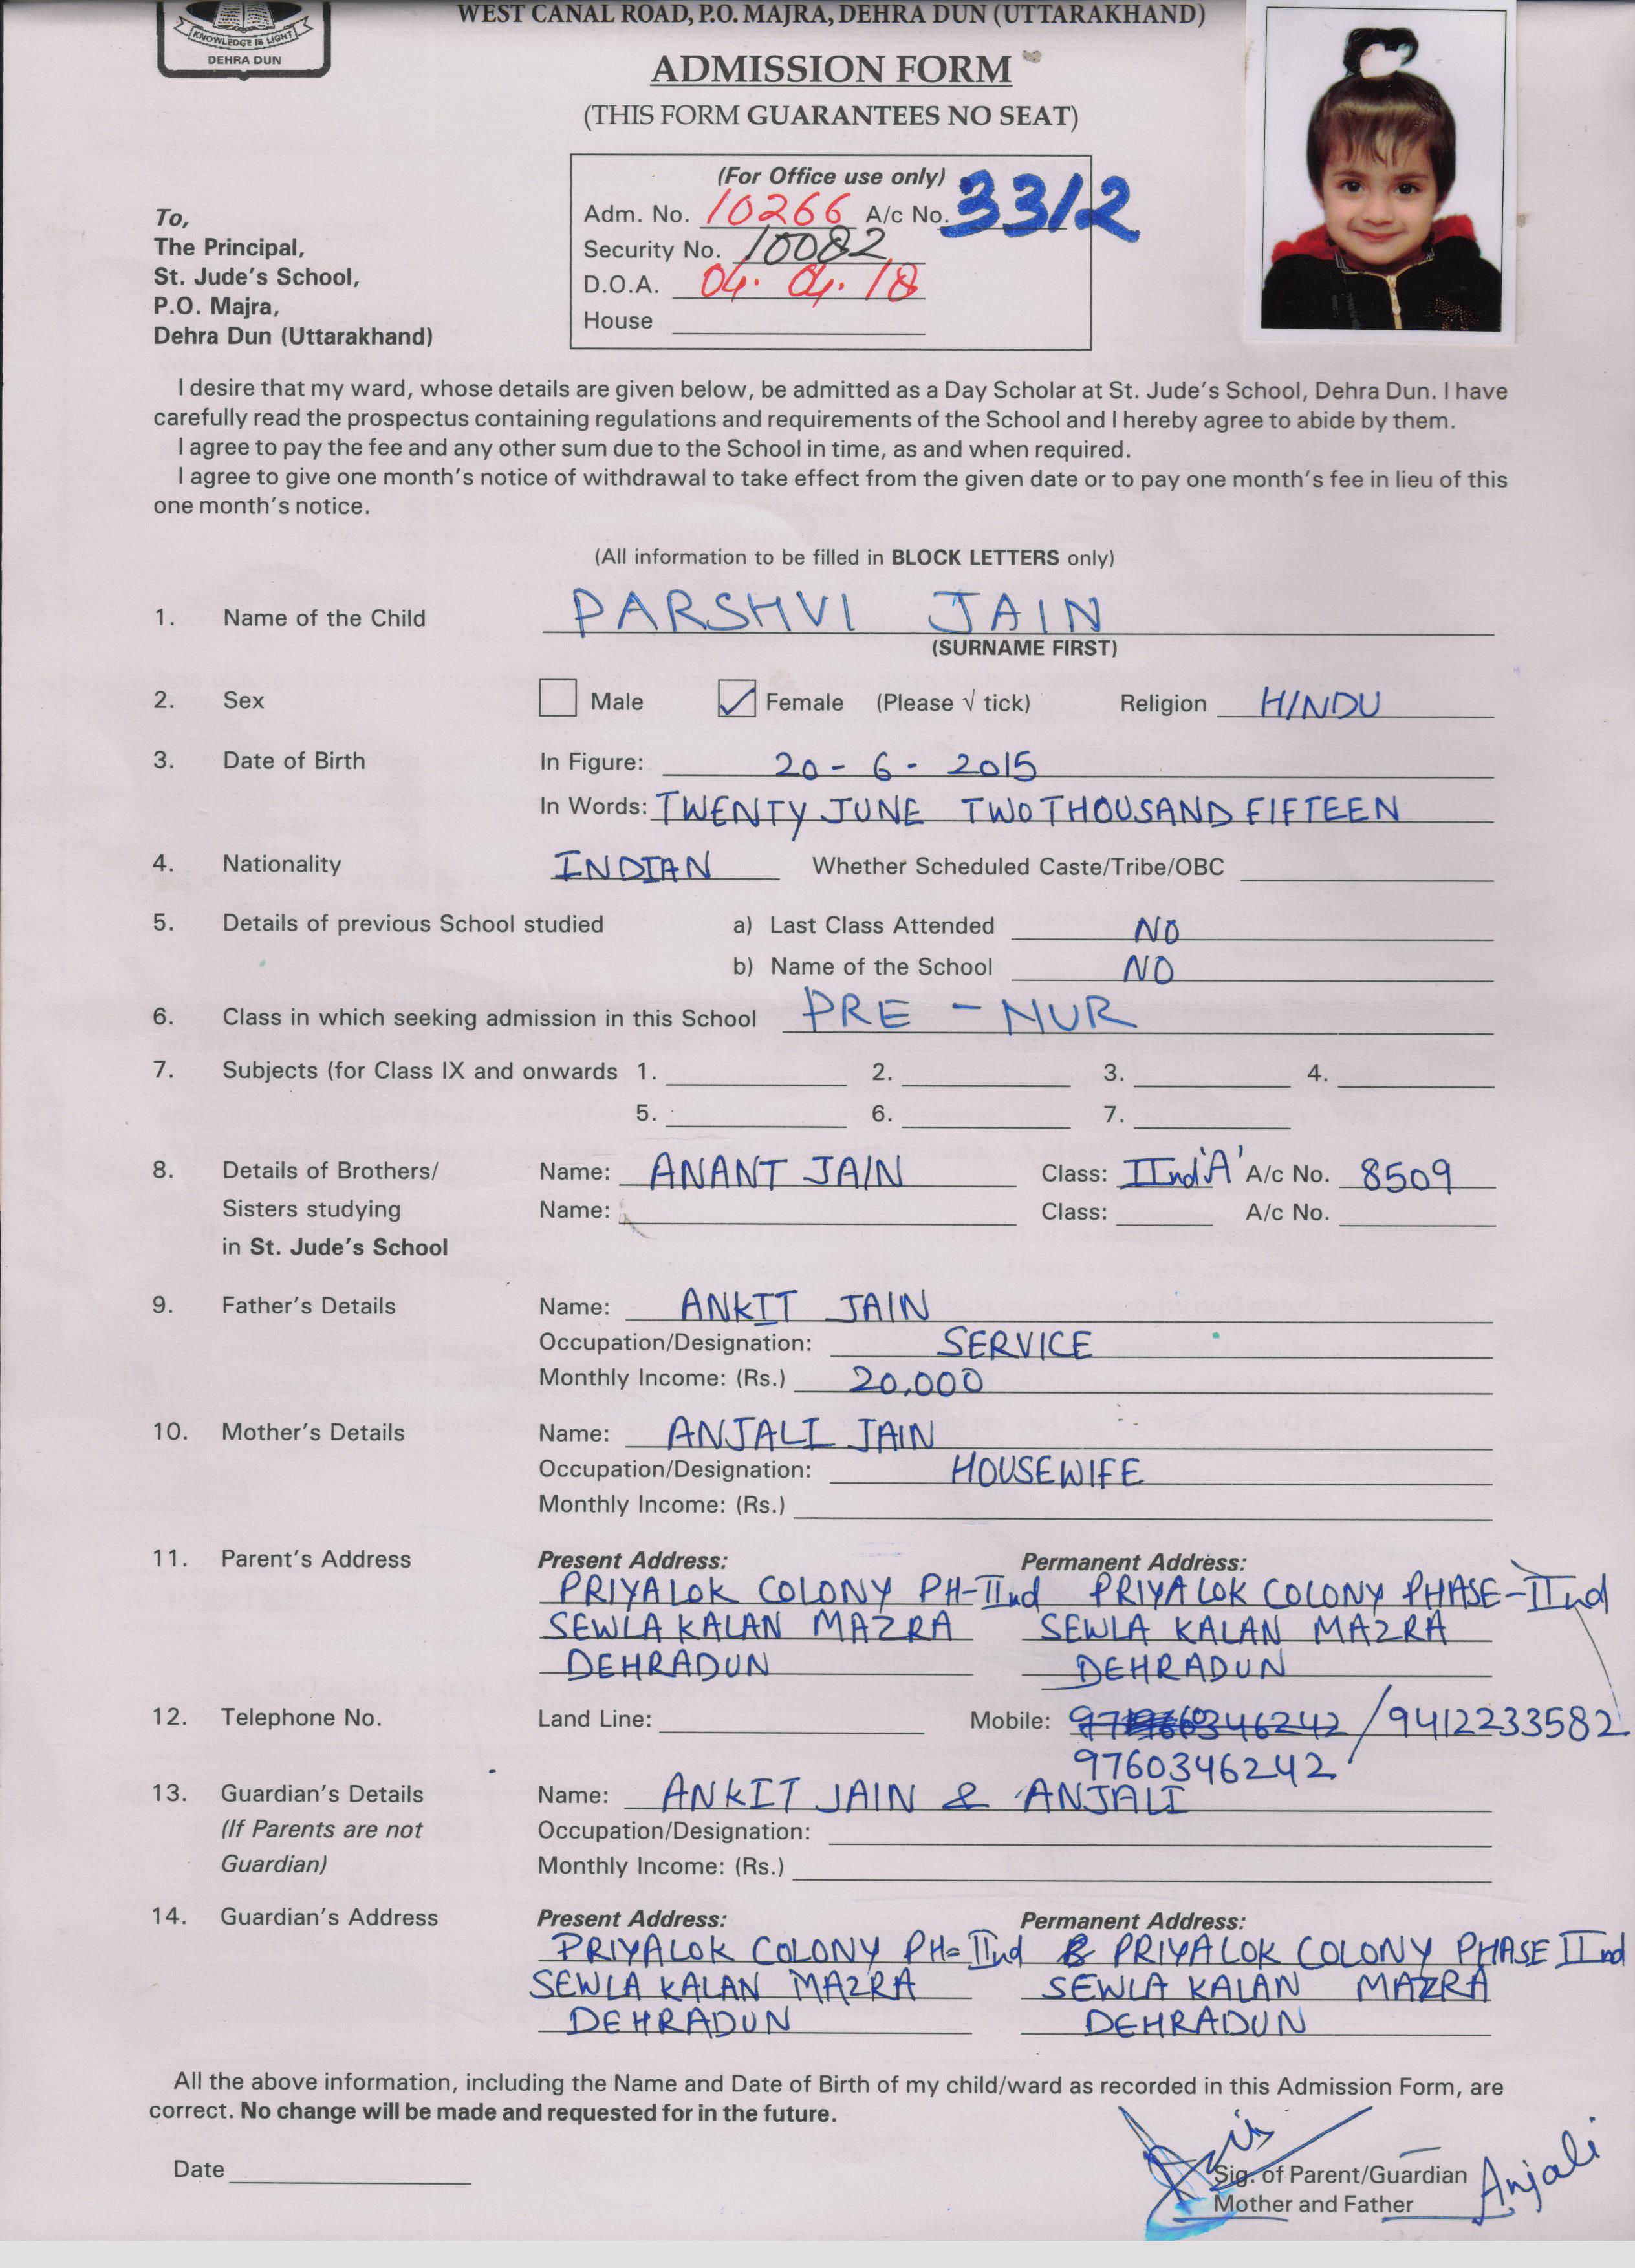 WEST CANAL ROAD, P.O. MAJRA, DEHRA DUN (UTTARAKHAND)
KNOWLEDGE IS LIGHT
DEHRA DUN
ADMISSION FORM
(THIS FORM GUARANTEES NO SEAT)
(For Office use only)
Adm. No. 10266 A/c No. 3312
Security No. 10082
D.O.A. 04. 04. 18
House
To,
The Principal,
St. Jude's School,
P.O. Majra,
Dehra Dun (Uttarakhand)
I desire that my ward, whose details are given below, be admitted as a Day Scholar at St. Jude's School, Dehra Dun. I have
carefully read the prospectus containing regulations and requirements of the School and I hereby agree to abide by them.
I agree to pay the fee and any other sum due to the School in time, as and when required.
I agree to give one month's notice of withdrawal to take effect from the given date or to pay one month's fee in lieu of this
one month's notice.
(All information to be filled in BLOCK LETTERS only)
1. Name of the Child PARSHVI JAIN
(SURNAME FIRST)
2. Sex Male Female (Please √ tick) Religion HINDU
3. Date of Birth In Figure: 20 - 6 - 2015
In Words: TWENTY JUNE TWO THOUSAND FIFTEEN
4. Nationality INDIAN Whether Scheduled Caste/Tribe/OBC
5. Details of previous School studied a) Last Class Attended NO
b) Name of the School NO
6. Class in which seeking admission in this School PRE - NUR
7. Subjects (for Class IX and onwards 1. 2. 3. 4.
5. 6. 7.
8. Details of Brothers/ Name: ANANT JAIN Class: IInd 'A' A/c No. 8509
Sisters studying Name: Class: A/c No.
in St. Jude's School
9. Father's Details Name: ANKIT JAIN
Occupation/Designation: SERVICE
Monthly Income: (Rs.) 20,000
10. Mother's Details Name: ANJALI JAIN
Occupation/Designation: HOUSEWIFE
Monthly Income: (Rs.)
11. Parent's Address Present Address: Permanent Address:
PRIYALOK COLONY PH-IInd PRIYALOK COLONY PHASE-IInd
SEWLA KALAN MAZRA SEWLA KALAN MAZRA
DEHRADUN DEHRADUN
12. Telephone No. Land Line: Mobile: /9412233582
9760346242
13. Guardian's Details Name: ANKIT JAIN & ANJALI
(If Parents are not Occupation/Designation:
Guardian) Monthly Income: (Rs.)
14. Guardian's Address Present Address: Permanent Address:
PRIYALOK COLONY PH= IInd PRIYALOK COLONY PHASE IInd
SEWLA KALAN MAZRA SEWLA KALAN MAZRA
DEHRADUN DEHRADUN
All the above information, including the Name and Date of Birth of my child/ward as recorded in this Admission Form, are
correct. No change will be made and requested for in the future.
Date
Sig. of Parent/Guardian
Mother and Father Anjali